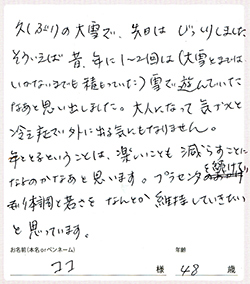 久しぶりの大雪で、先日はびっくりしました。
そういえば昔、年に1〜2回は(大雪とまでは
いかないまでも積もっていた)雪で遊んでいた
なあと思い出しました。大人になって気づくと
冷え症で外に出る気にもなりません。
年をとるということは、楽しいことも減らすことに
なるのかなあと思います。プラセンタを続けて
体調と若さをなんとか維持していきたい
と思っています。
お名前(本名orペンネーム) 年齢
ココ 様 48 歳